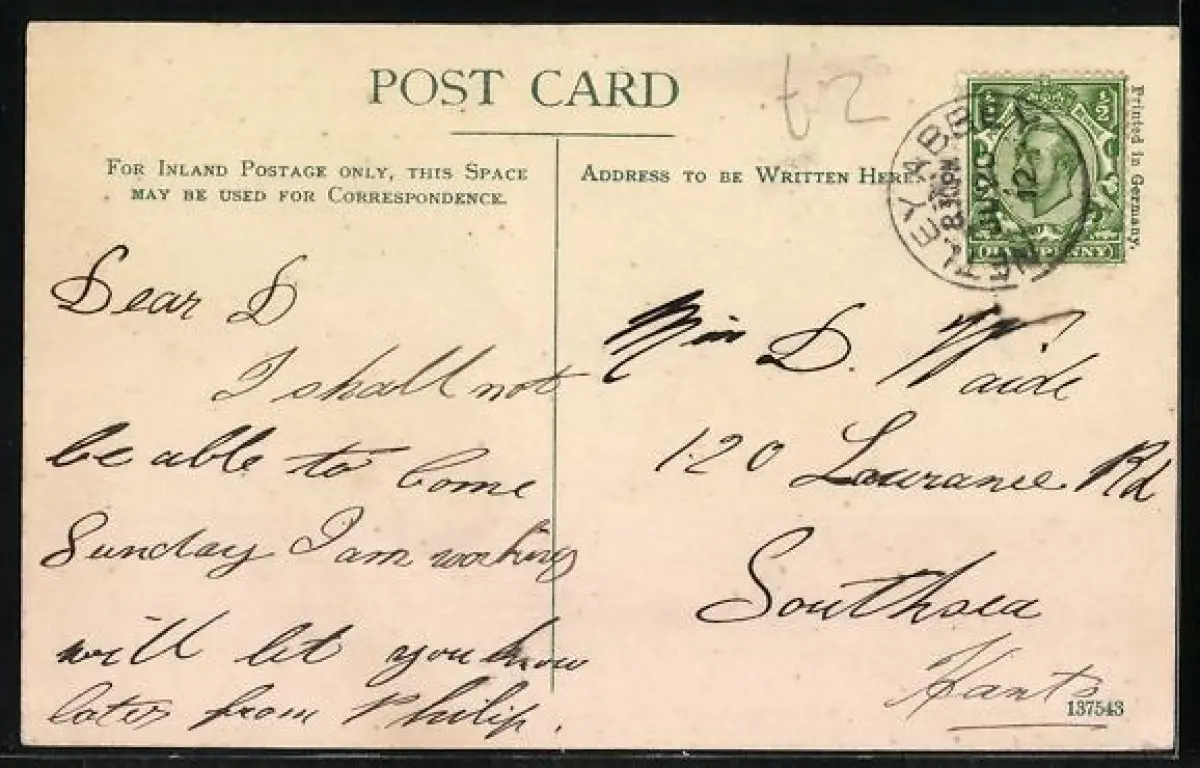 POST CARD
t2
FOR INLAND POSTAGE ONLY, THIS SPACE
MAY BE USED FOR CORRESPONDENCE.
ADDRESS TO BE WRITTEN HERE.
NETLEY ABBEY
8.30PM
JU 20
12
½ ½
HALFPENNY
Printed in Germany.
Dear D
I shall not
be able to come
Sunday I am working
will let you know
later from Philip.
Miss D. Waide
120 Lawrance Rd
Southsea
Hants
137543